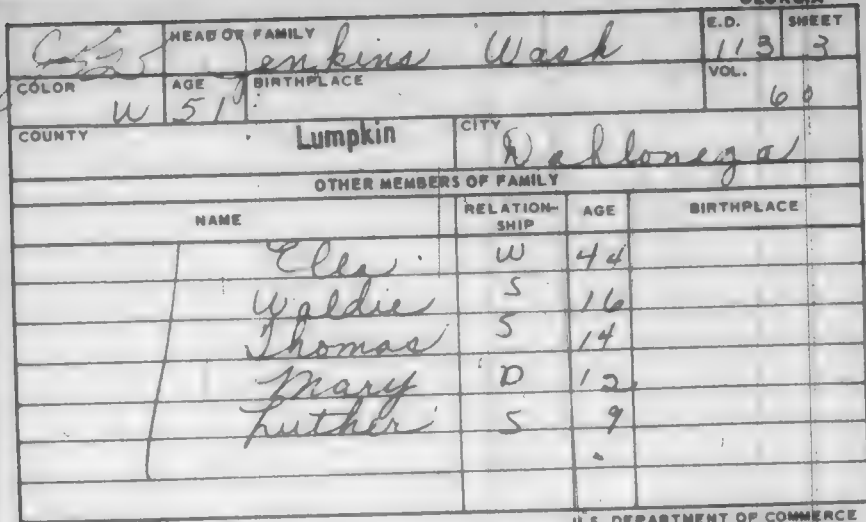 GEORGIA
HEAD OF FAMILY E.D. SHEET
Jenkins Wash 113 3
COLOR AGE BIRTHPLACE VOL.
W 51 60
COUNTY Lumpkin CITY Dahlonega
OTHER MEMBERS OF FAMILY
NAME RELATION-SHIP AGE BIRTHPLACE
Ella W 44
Waldie S 16
Thomas S 14
Mary D 12
Luther S 9
U.S. DEPARTMENT OF COMMERCE